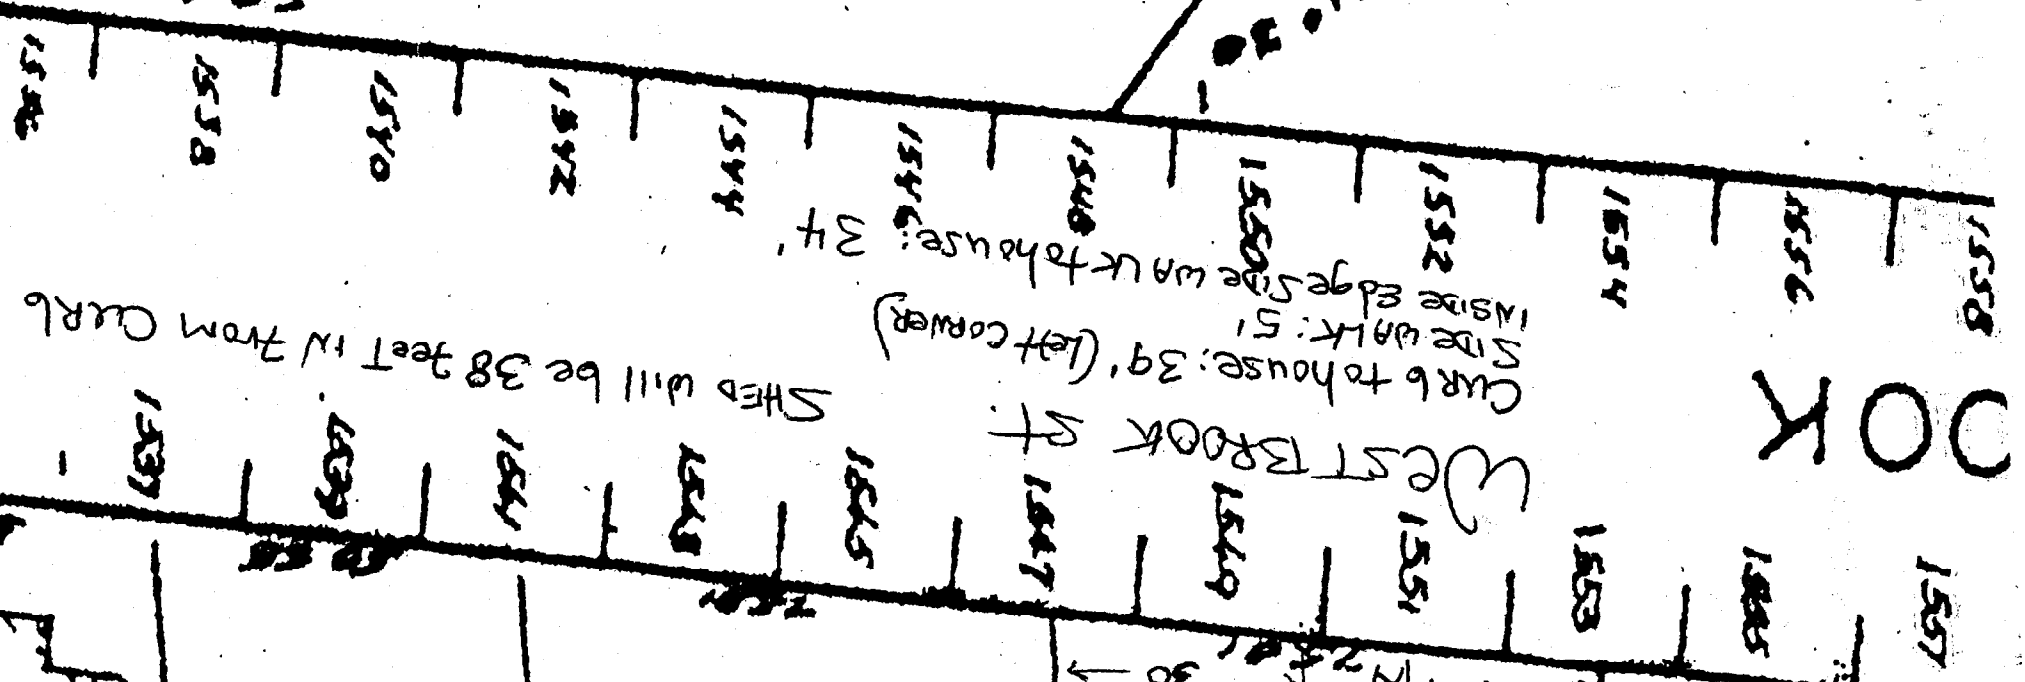 1538
1540
1542
1544
1546
1548
1550
1552
1554
1556
1558
WeST BROOK ST.
CURb to house: 39' (Left CORNER)
SIDe WALK: 5'
INSIDe Edge SIDe WALK to house: 34'
SHED will be 38 feeT IN from CURb
OOK
1537
1539
1541
1543
1545
1547
1549
1551
1553
1555
1557
30